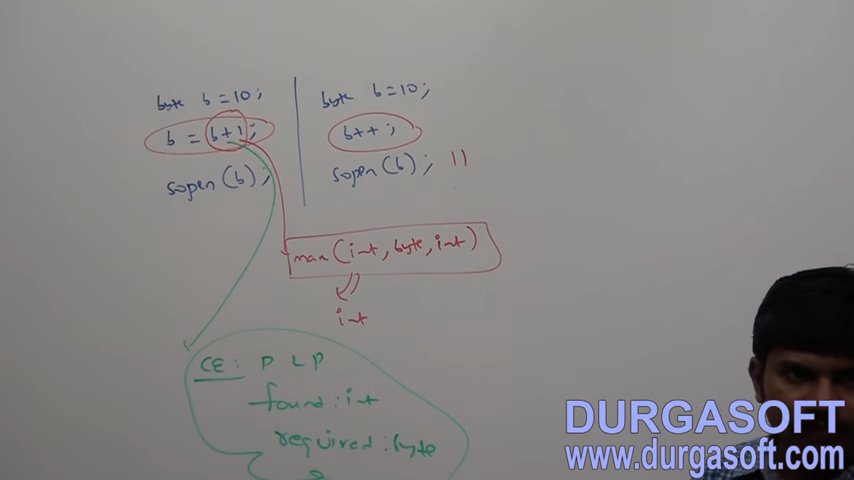 byte b = 10;
b = b+1;
sopen(b);
byte b = 10;
b++;
sopen(b); 11
max(int, byte, int)
int
CE: PLP
found: int
required: byte
DURGASOFT
www.durgasoft.com